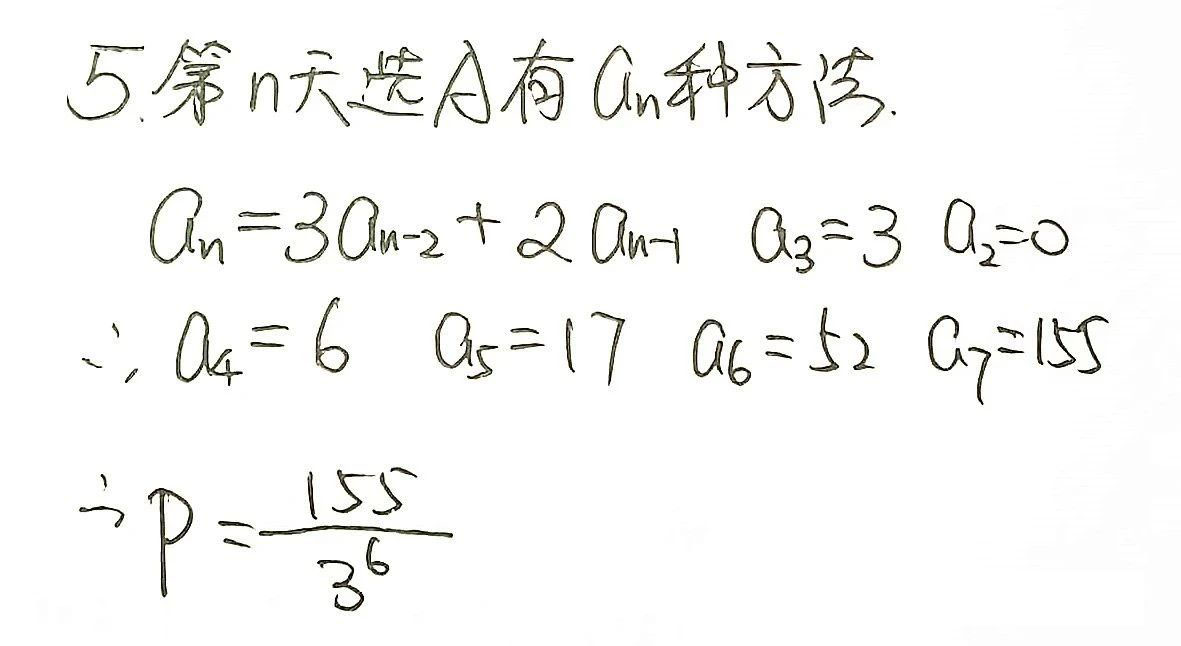 5.第n天选A有aₙ种方法.
aₙ=3aₙ₋₂+2aₙ₋₁ a₃=3 a₂=0
∴ a₄=6 a₅=17 a₆=52 a₇=155
∴ P=155/3⁶